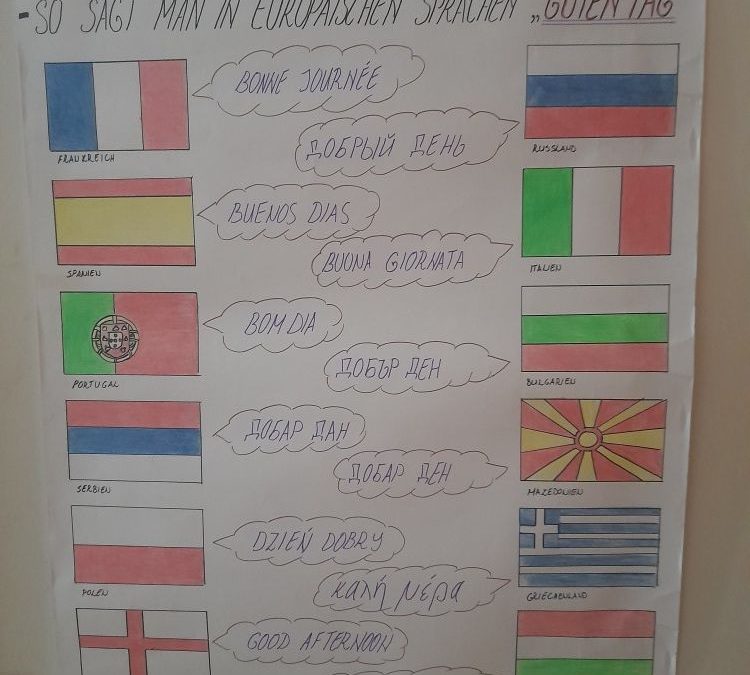 - SO SAGT MAN IN EUROPÄISCHEN SPRACHEN „GUTEN TAG
BONNE JOURNÉE
FRAUKREICH
ДОБРЫЙ ДЕНЬ
RUSSLAND
BUENOS DIAS
SPANIEN
BUONA GIORNATA
ITALIEN
BOM DIA
PORTUGAL
ДОБЪР ДЕН
BULGARIEN
ДОБАР ДАН
SERBIEN
ДОБАР ДЕН
MAZEDONIEN
DZIEŃ DOBRY
POLEN
καλή μέρα
GRIECHENLAND
GOOD AFTERNOON